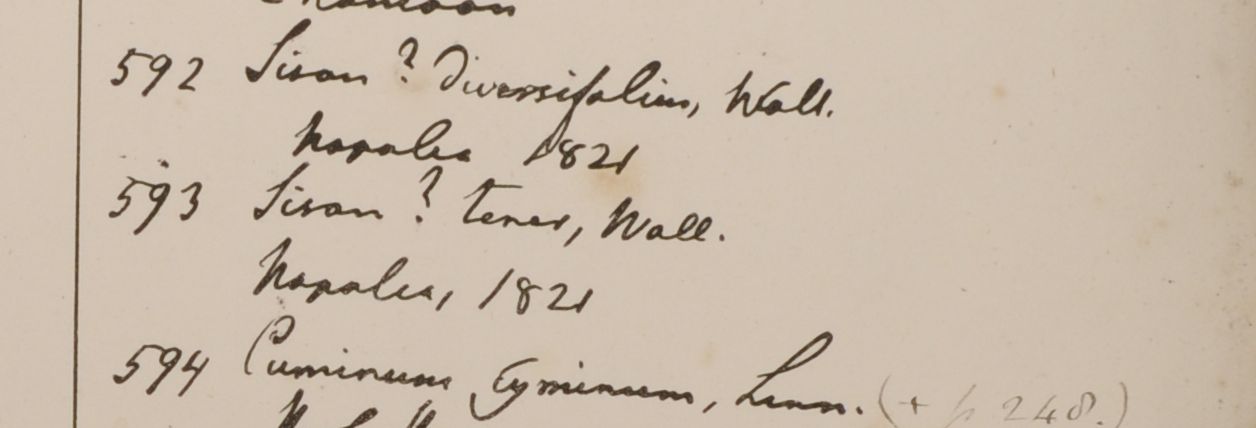 592 Sison ? diversifolium, Wall.
Napalia 1821
593 Sison ? tener, Wall.
Napalia, 1821
594 Cuminum Cyminum, Linn. (+ p 248.)